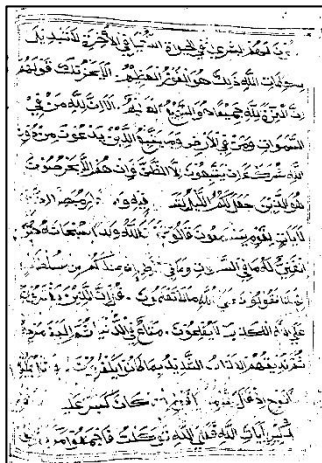 لهم البشرى في الحيوة الدنيا وفي الآخرة لا تبديل
لكلمات الله ذلك هو الفوز العظيم ولا يحزنك قولهم
ان العزة لله جميعا هو السميع العليم الا ان لله من في
السموات ومن في الارض وما يتبع الذين يدعون من دون
الله شركاء ان يتبعون الا الظن وان هم الا يخرصون
هو الذي جعل لكم الليل فيه
لآيات لقوم يسمعون قالوا الله ولدا سبحانه هو
الغني له ما في السموات وما في ان عندكم من سلطان
بهذا اتقولون على الله ما لا تعلمون قل ان الذين يفترون
على الله الكذب لا يفلحون متاع في الدنيا ثم الينا
ثم نذيقهم العذاب الشديد بما كانوا يكفرون
نوح اذ قال لقومه كان كبر عليكم
بآيات الله فعلى الله توكلت فاجمعوا